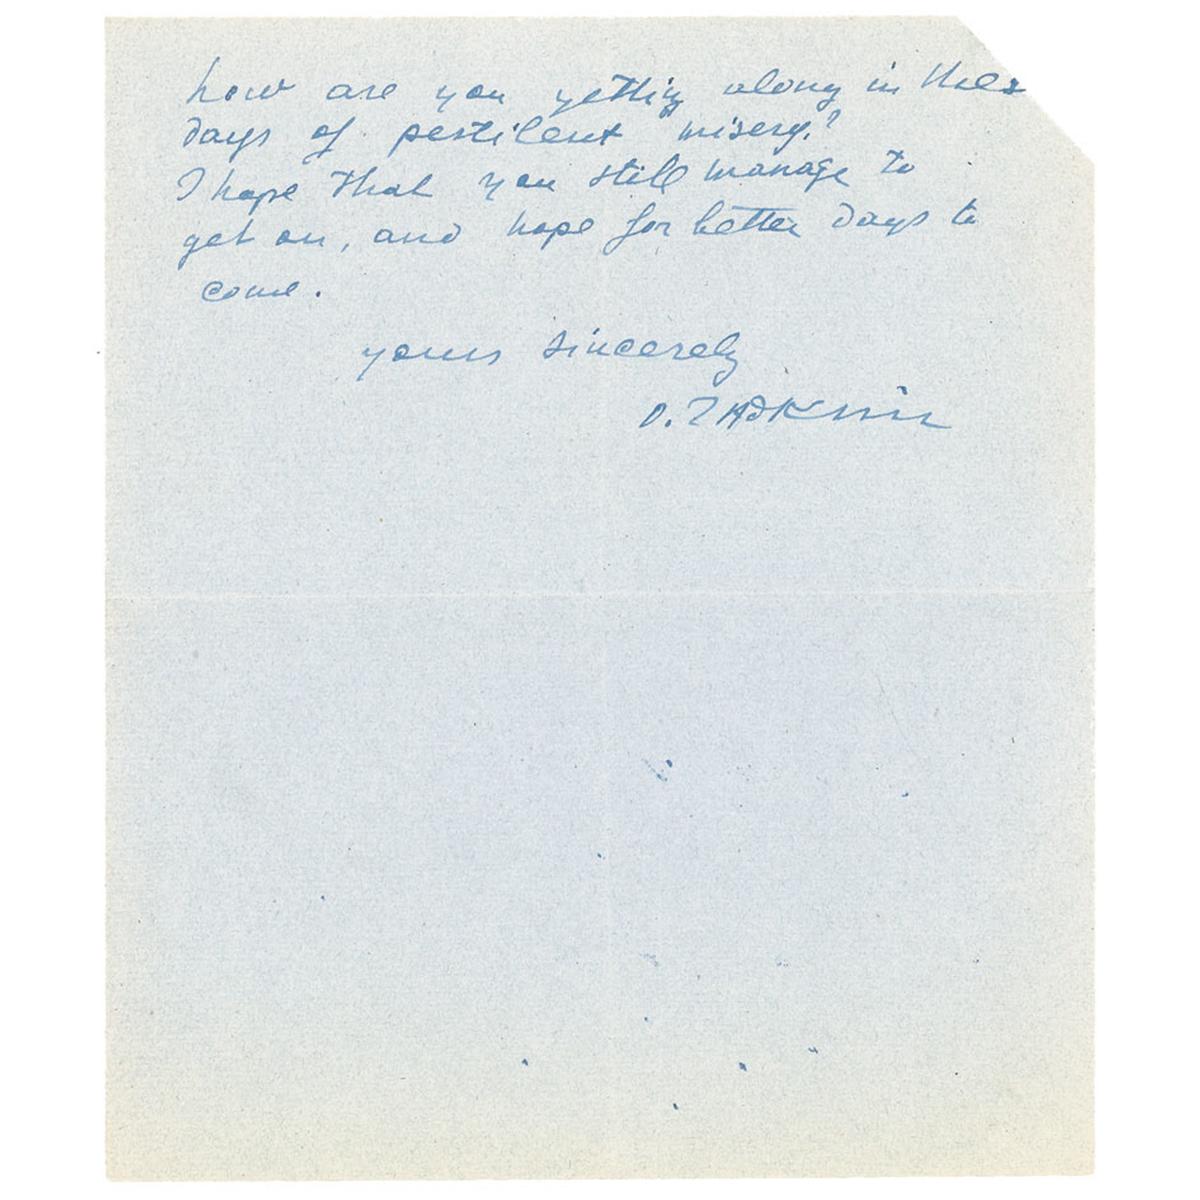 how are you getting along in these
days of pestilent misery?
I hope that you still manage to
get on, and hope for better days to
come.
yours sincerely
O. ZADKINE